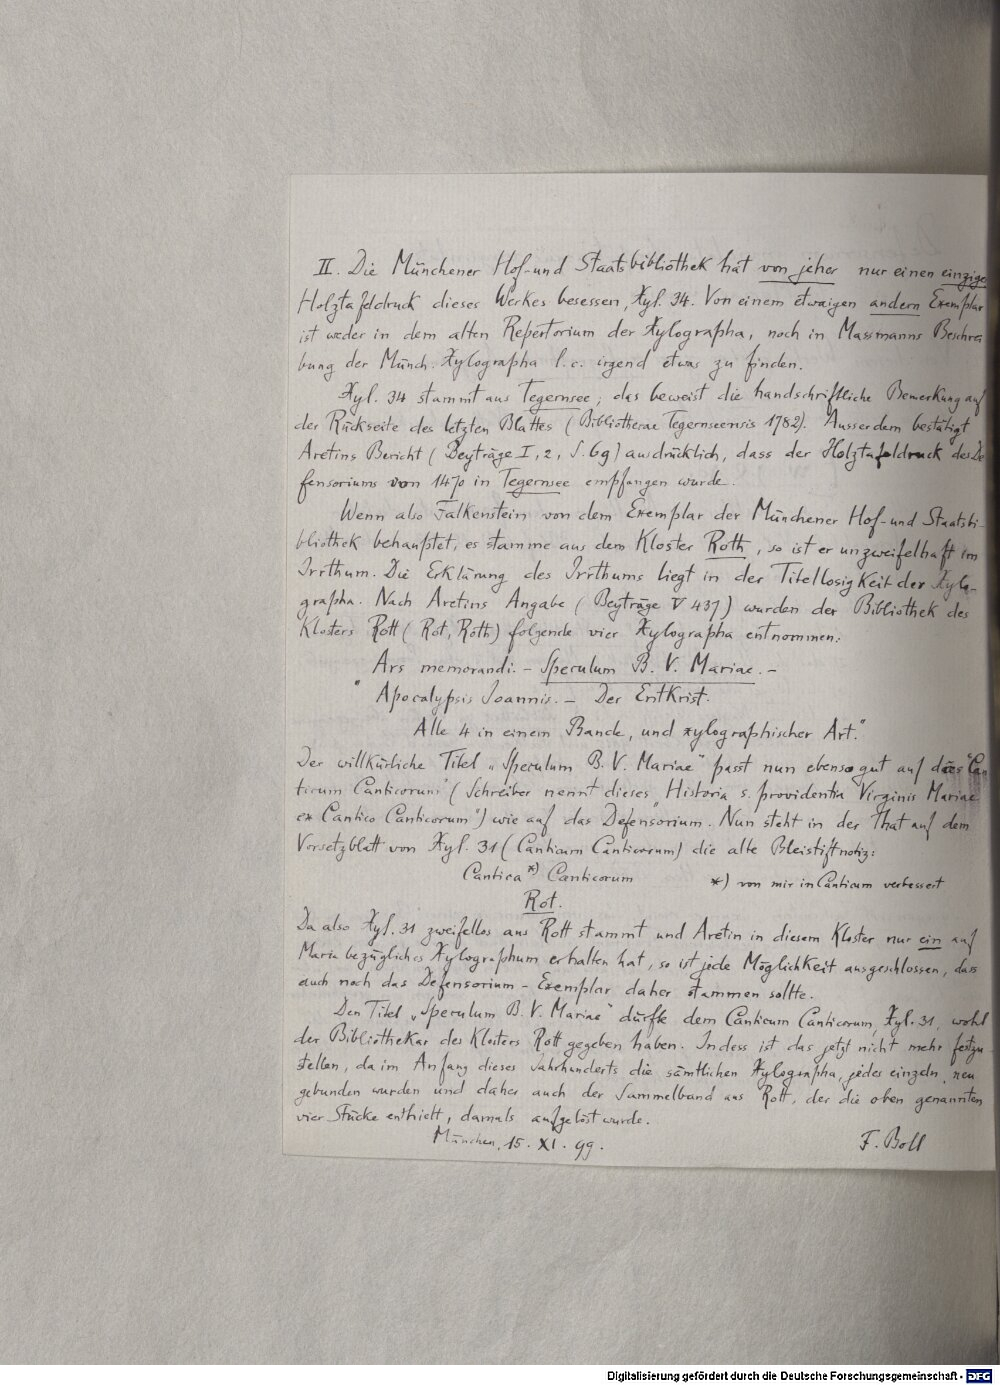 II. Die Münchener Hof- und Staatsbibliothek hat von jeher nur einen einzigen
Holztafeldruck dieses Werkes besessen, Xyl. 34. Von einem etwaigen andern Exemplar
ist weder in dem alten Repertorium der Xylographa, noch in Massmanns Beschrei
bung der Münch. Xylographa l. c. irgend etwas zu finden.
Xyl. 34 stammt aus Tegernsee; das beweist die handschriftliche Bemerkung auf
der Rückseite des letzten Blattes (Bibliothecae Tegernseensis 1782). Ausserdem bestätigt
Aretins Bericht (Beyträge I, 2, S. 69) ausdrücklich, dass der Holztafeldruck des De
fensoriums von 1470 in Tegernsee empfangen wurde.
Wenn also Falkenstein von dem Exemplar der Münchener Hof- und Staatsbi-
bliothek behauptet, es stamme aus dem Kloster Roth, so ist er unzweifelhaft im
Irrthum. Die Erklärung des Irrthums liegt in der Titellosigkeit der Xylo-
grapha. Nach Aretins Angabe (Beyträge V 437) wurden der Bibliothek des
Klosters Rott (Rot, Roth) folgende vier Xylographa entnommen:
Ars memorandi. – Speculum B. V. Mariae. –
"Apocalypsis Joannis. – Der Entkrist.
Alle 4 in einem Bande, und xylographischer Art."
Der willkürliche Titel „Speculum B. V. Mariae" passt nun ebenso gut auf das "Can
ticum Canticorum" (Schreiber nennt dieses "Historia s. providentia Virginis Mariae
ex Cantico Canticorum") wie auf das Defensorium. Nun steht in der That auf dem
Vorsetzblatt von Xyl. 31 (Canticum Canticorum) die alte Bleistiftnotiz:
Cantica *) Canticorum *) von mir in Canticum verbessert
Rot.
Da also Xyl. 31 zweifellos aus Rott stammt und Aretin in diesem Kloster nur ein auf
Maria bezügliches Xylographum erhalten hat, so ist jede Möglichkeit ausgeschlossen, dass
auch noch das Defensorium - Exemplar daher stammen sollte.
Den Titel „Speculum B. V. Mariae" dürfte dem Canticum Canticorum, Xyl. 31, wohl
der Bibliothekar des Klosters Rott gegeben haben. Indess ist das jetzt nicht mehr festzu-
stellen, da im Anfang dieses Jahrhunderts die sämtlichen Xylographa, jedes einzeln, neu
gebunden wurden und daher auch der Sammelband aus Rott, der die oben genannten
vier Stücke enthielt, damals aufgelöst wurde.
München, 15. XI. 99. F. Boll
Digitalisierung gefördert durch die Deutsche Forschungsgemeinschaft - DFG